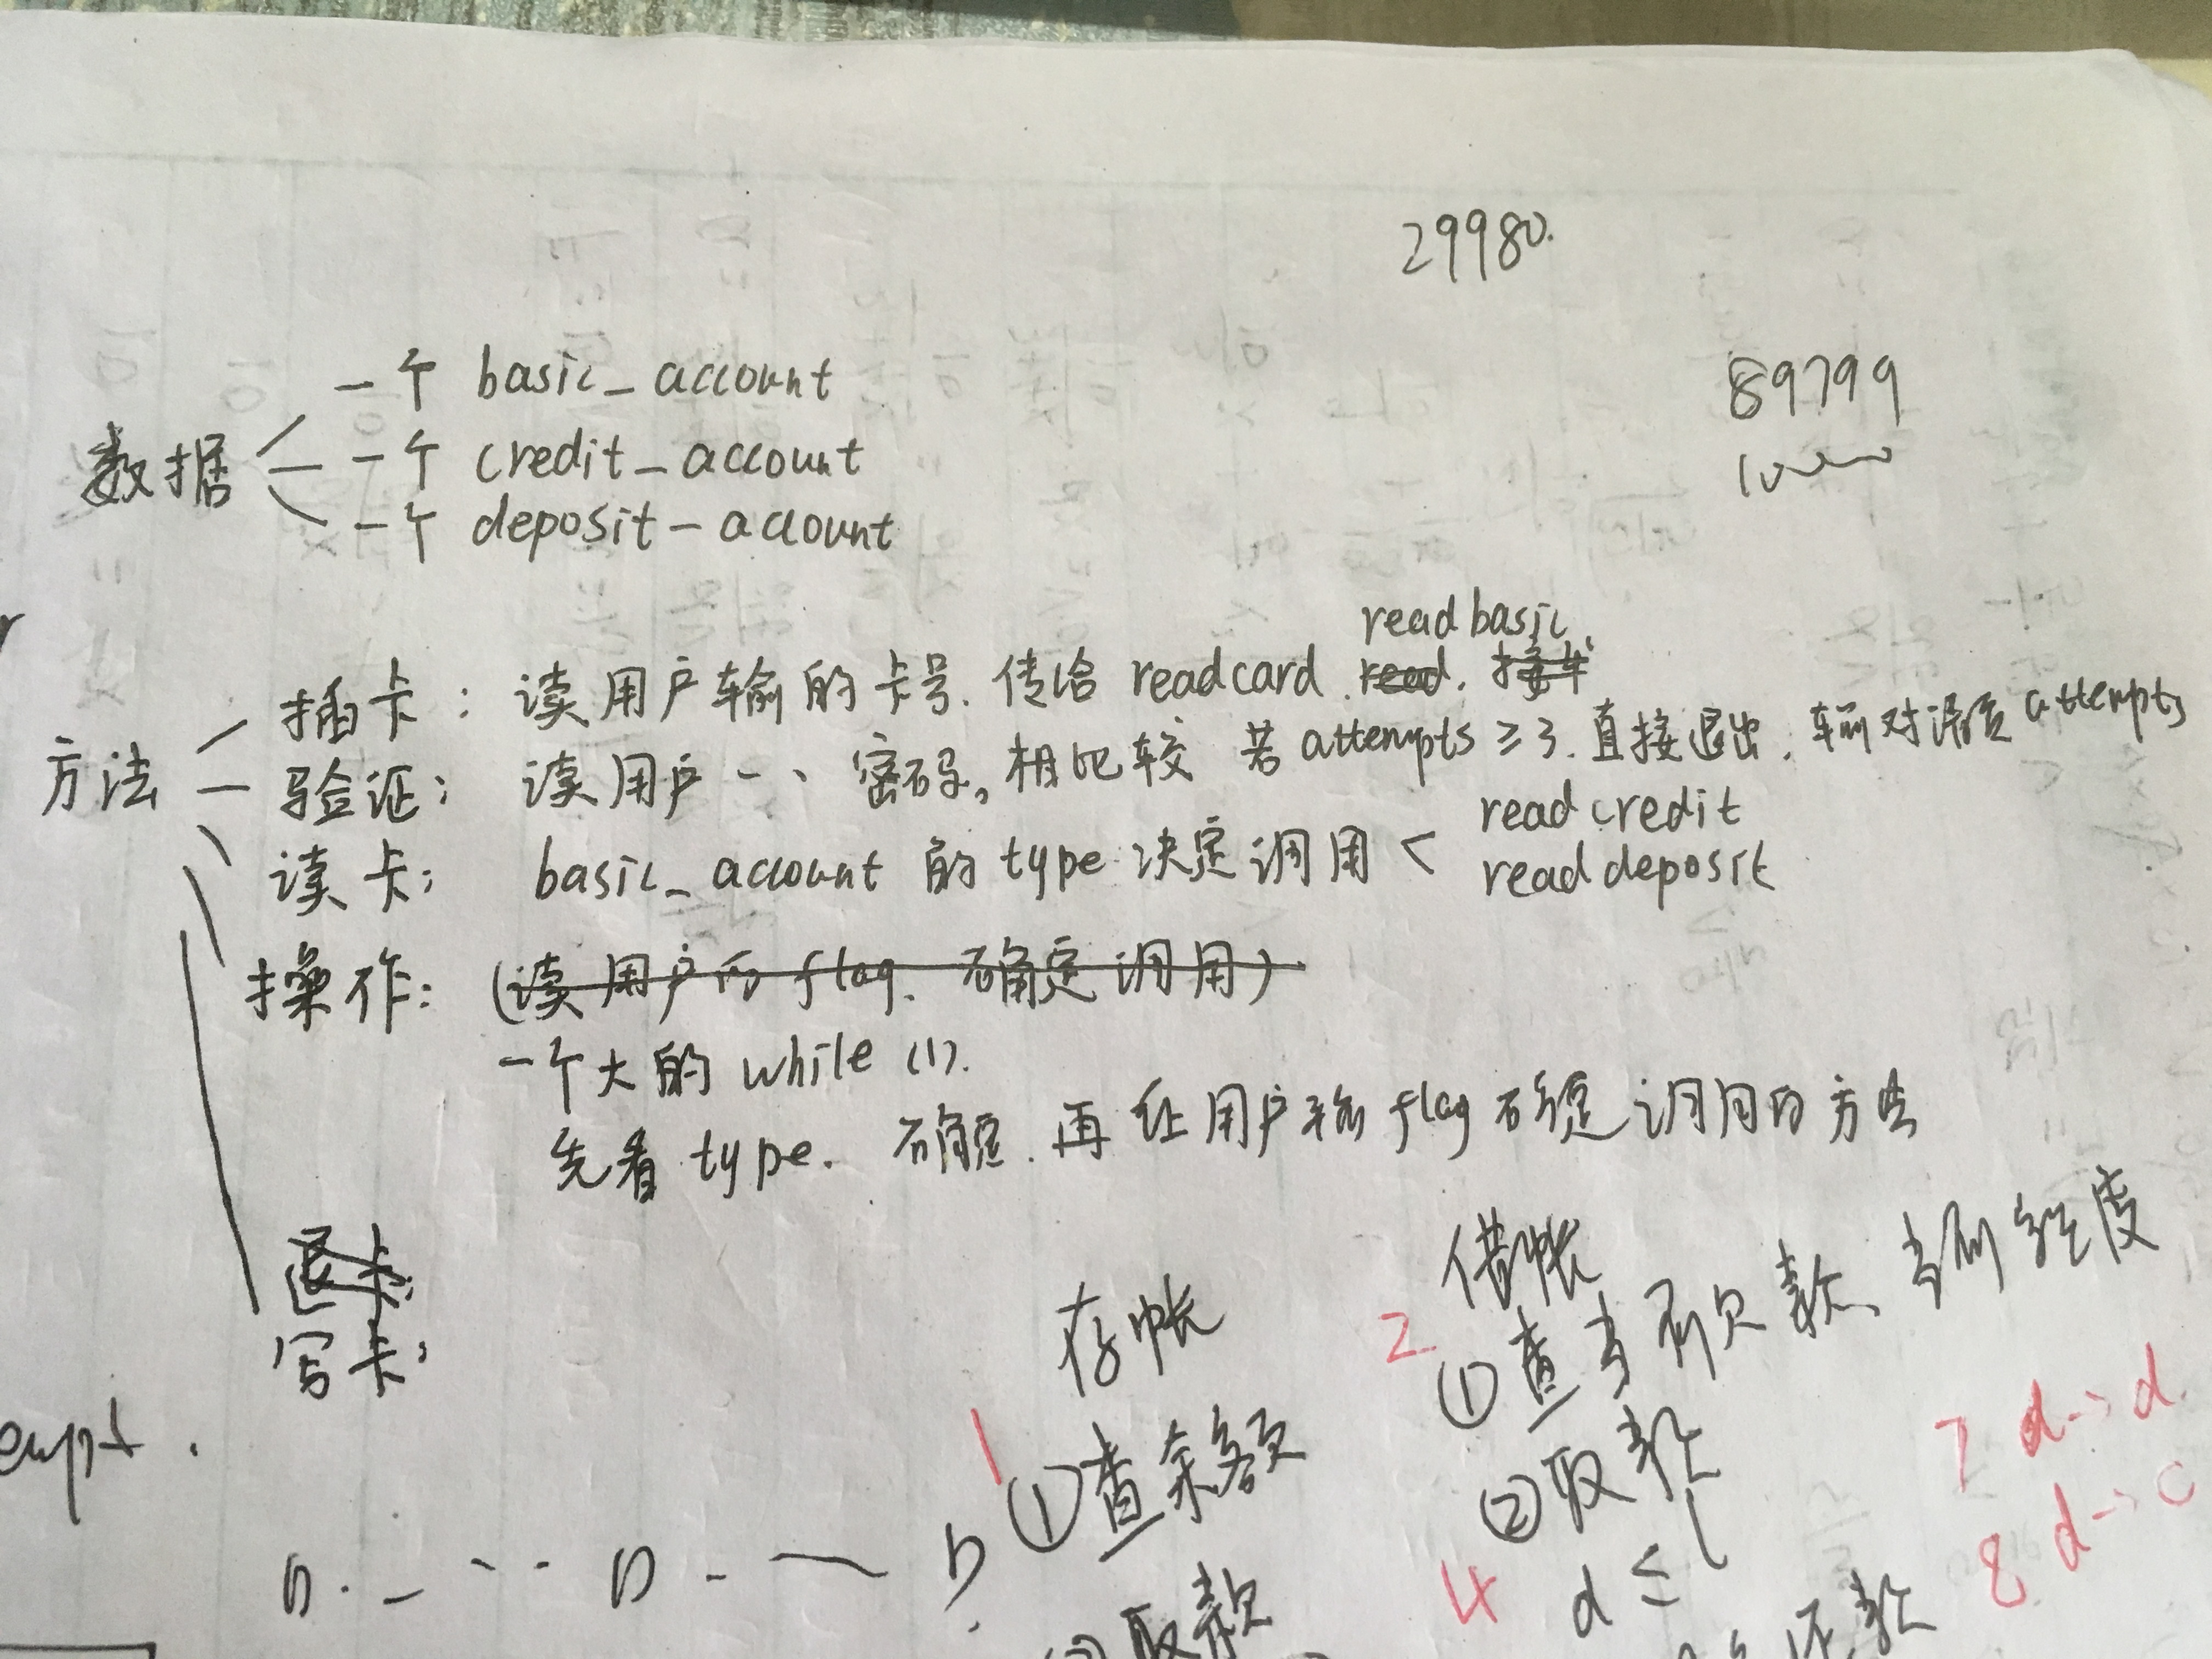 29980.
89799
数据
一个 basic_account
一个 credit_account
一个 deposit-account
方法
read basic
插卡: 读用户输的卡号. 传给 readcard. read.
验证: 读用户 密码, 相比较 若 attempts ≥3. 直接退出. 输对 attempts
读卡: basic_account 的 type 决定调用 <
read credit
read deposit
操作: (读用户的 flag. 确定调用)
一个大的 while (1).
先看 type. 确定. 再让用户输 flag 确定调用的方法
退卡:
写卡:
存帐
1 ①查余额
取款
借帐
2 ①查当前欠款、当前额度
②取款
4 d ≤ l
还款
7 d→d.
8 d→c